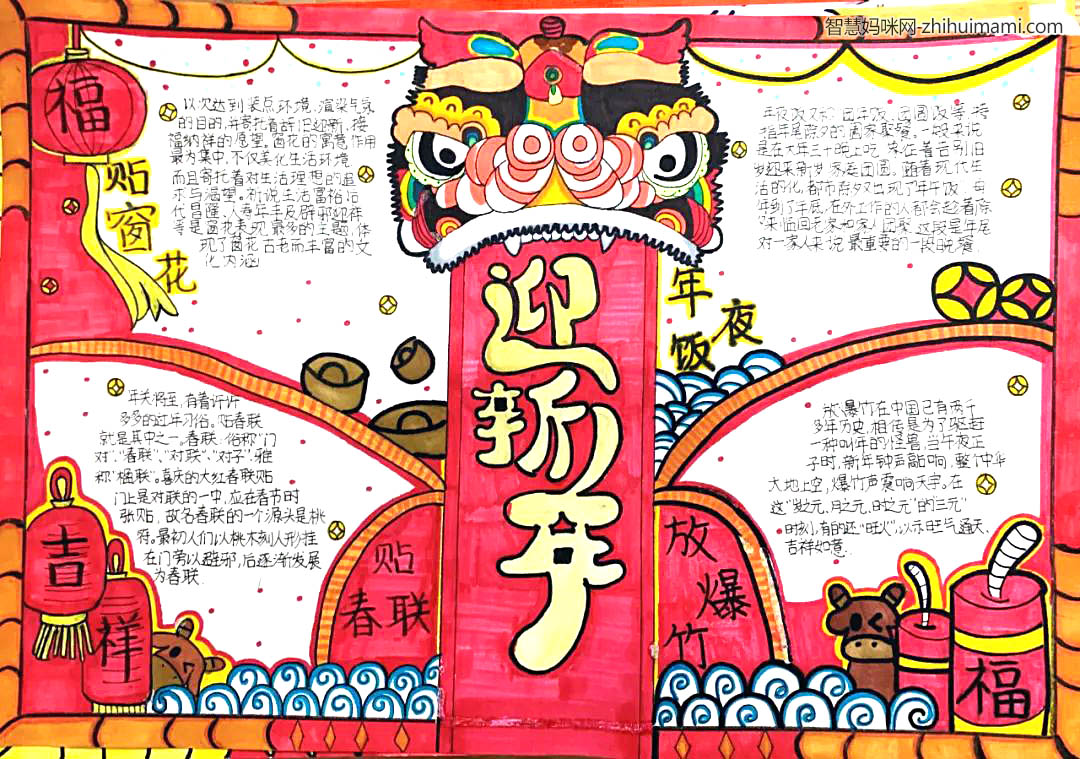 智慧妈咪网-zhihuimami.com
福
贴
窗
花
以次达到装点环境、渲染气氛
的目的,并寄托着辞旧迎新、接
福纳祥的愿望。窗花的寓意作用
最为集中,不仅美化生活环境
而且寄托着对生活理想的追
求与渴望。祈说生活富裕治
代昌隆、人寿年丰及辟邪纳祥
等是窗花表现最多的主题,体
现了窗花古老而丰富的文
化内涵
迎
新
年
年夜饭又称团年饭、团圆饭等,特
指年尾除夕的阖家聚餐。一般来说
是在大年三十晚上吃
岁迎来新岁,家庭团圆。随着现代生
活的化,都市除夕出现了年午饭,每
年到了年底,在外工作的人都会趁着除
夕来临回老家和家人团聚,这段是年尾
对一家人来说最重要的一段晚餐
年
夜
饭
年关将至,有着许许
多多的过年习俗。贴春联
就是其中之一,春联:俗称“门
对”、“春联”、“对联”、“对子”,雅
称“楹联”。喜庆的大红春联贴
门上是对联的一中,应在春节时
张贴,故名春联的一个源头是桃
符。最初人们以桃木刻人形挂
在门旁以避邪,后逐渐发展
为春联.
贴
春联
吉
祥
放爆竹在中国已有两千
多年历史,相传是为了驱赶
一种叫年的怪兽,当午夜正
子时,新年钟声敲响,整个中华
大地上空,爆竹声震响天宇。在
这“岁之元、月之元、时之元”的“三元”
时刻,有的还“旺火”,以示旺气通天、
吉祥如意.
放
爆
竹
福